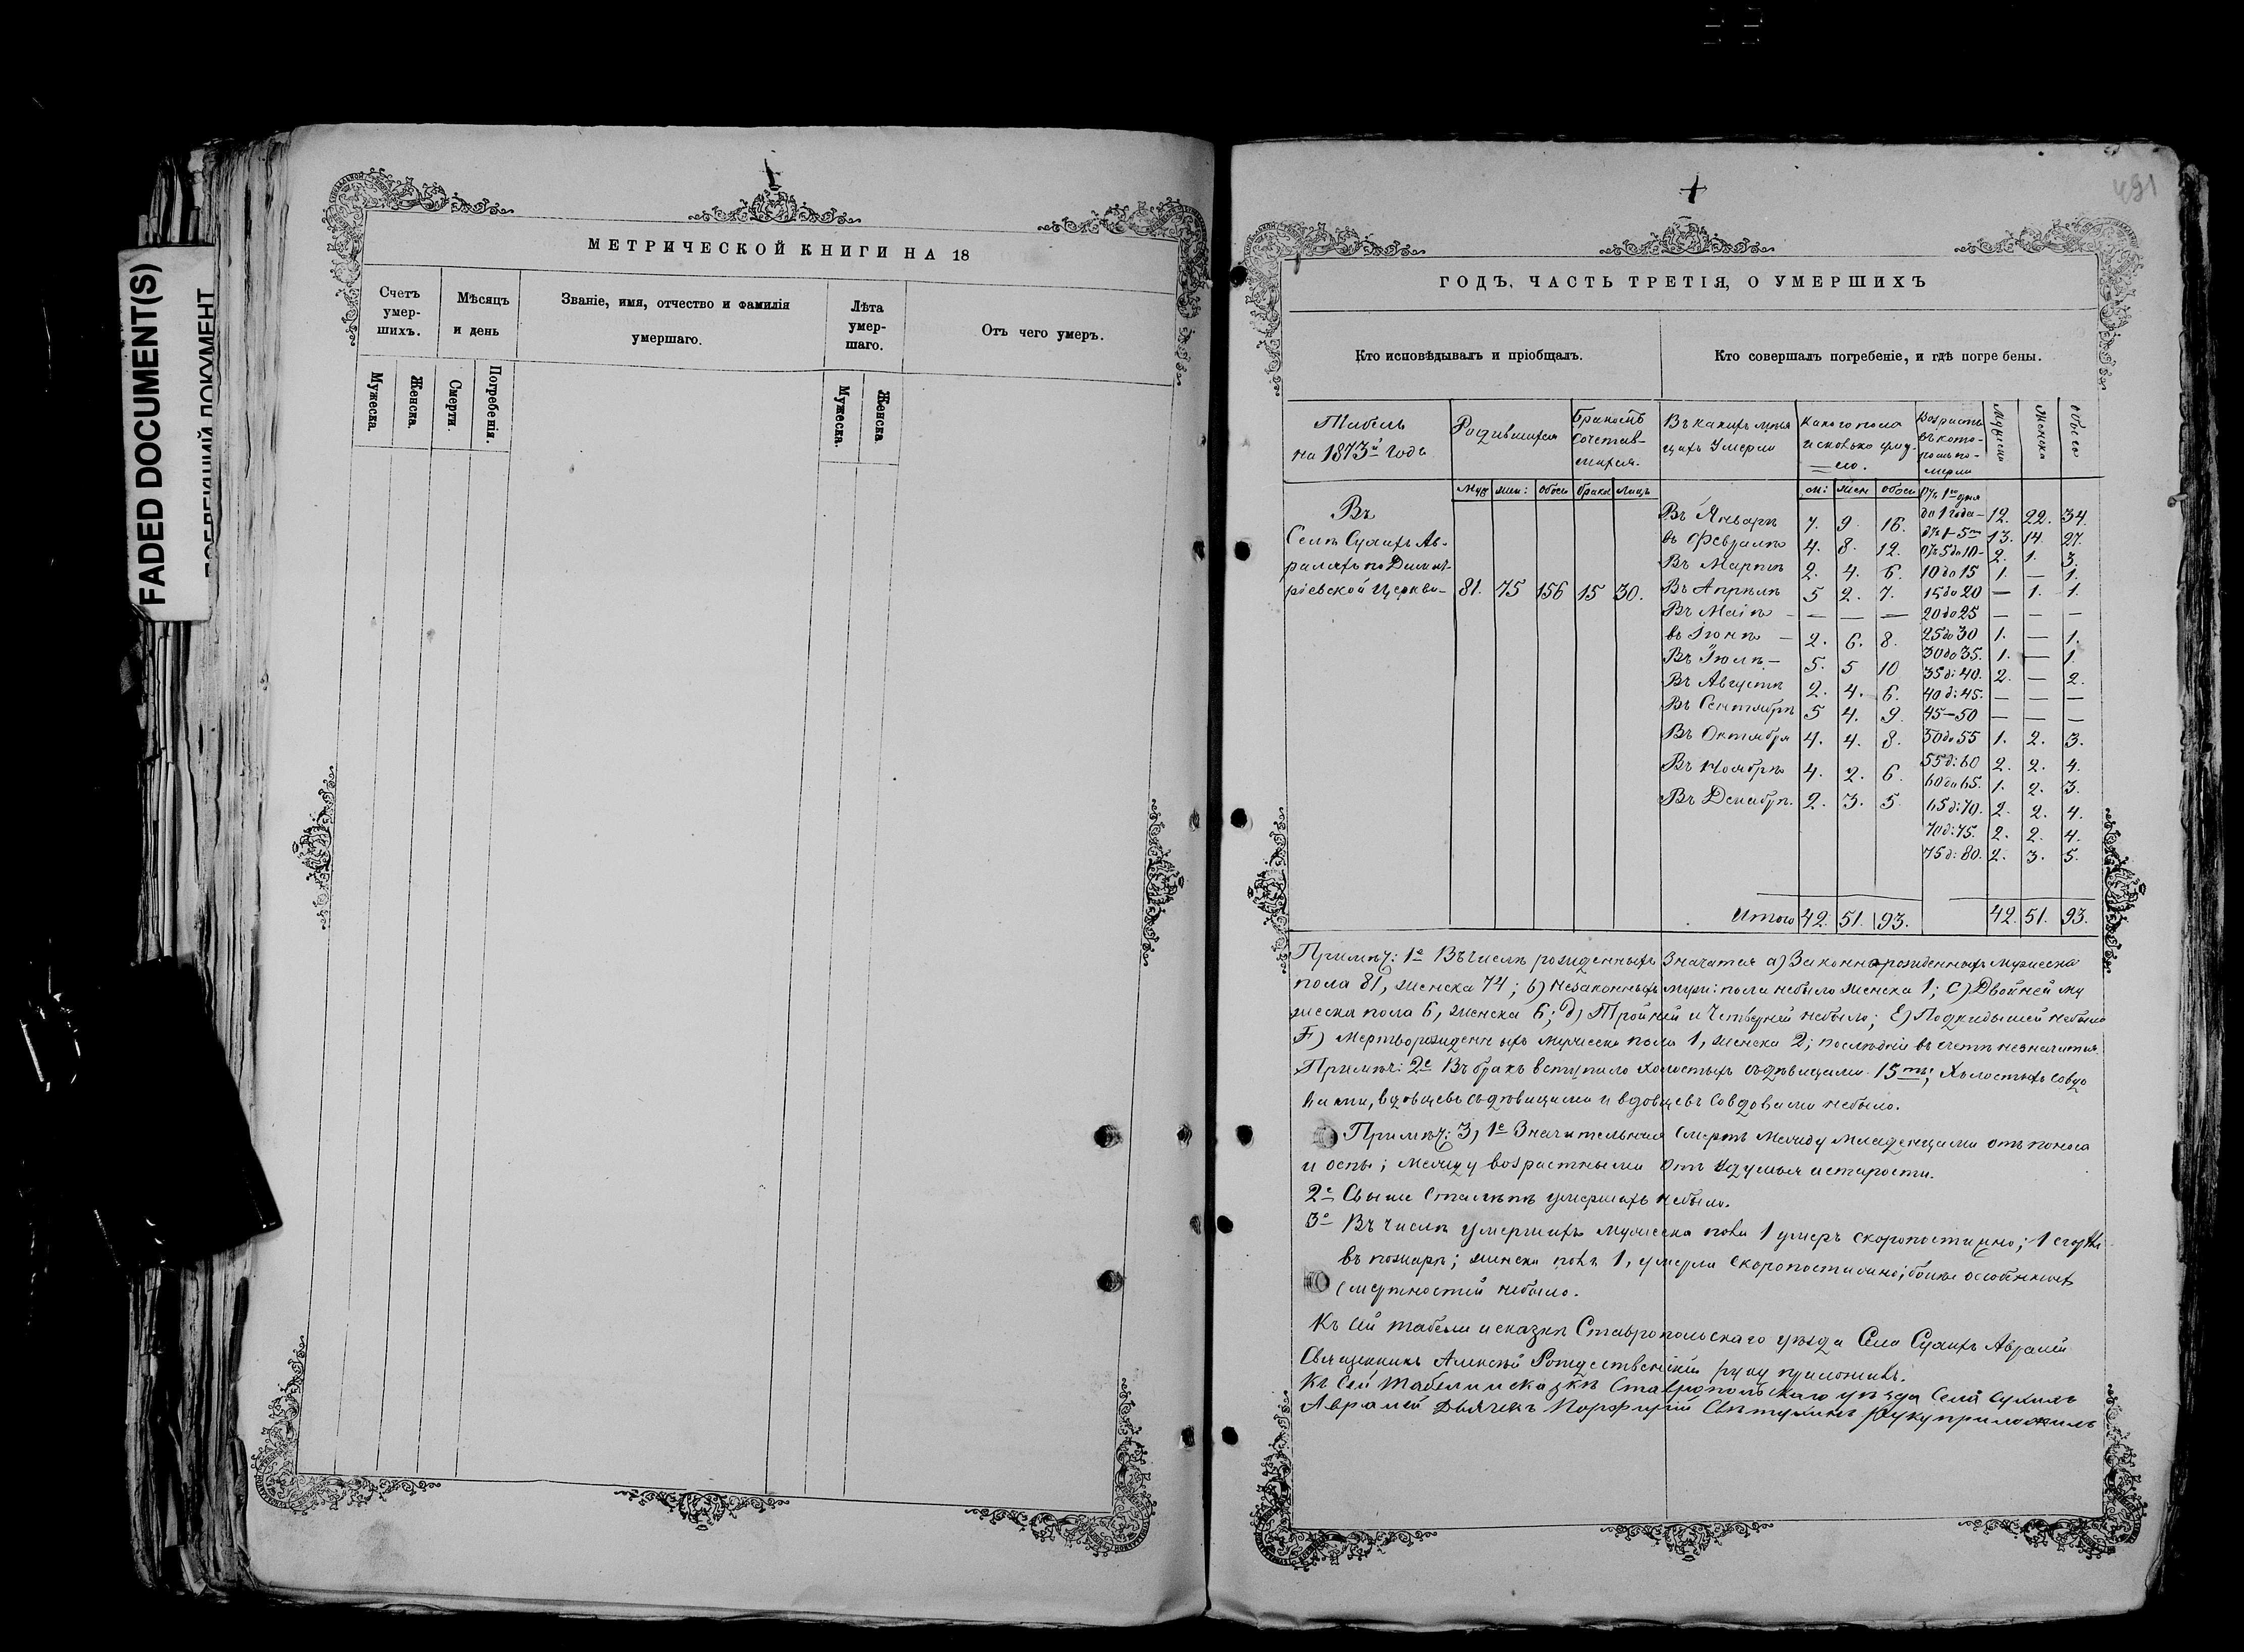 FADED DOCUMENT(S)
МЕТРИЧЕСКОЙ КНИГИ НА 18
Счетъ умер-шихъ.
Мѣсяцъ и день
Званіе, имя, отчество и фамилія умершаго.
Лѣта умер-шаго.
Отъ чего умеръ.
Мужеска. Женска. Смерти. Погребенія. Мужеска. Женска
491
ГОДЪ, ЧАСТЬ ТРЕТІЯ, О УМЕРШИХЪ
Кто исповѣдывалъ и пріобщалъ.
Кто совершалъ погребеніе, и гдѣ погребены.
Табель на 1873й годъ
Родившихся
Бракомъ сочетав-шихся.
Въ какихъ мѣся цахъ Умерло
Какого пола и сколько умер-ло.
Возрастъ въ кото-ромъ по-мерли
Мужеска Женска Обоего
Муж жен: обоег браки Лицъ м: жен обоег Отъ 1го дня
Въ
Селѣ Сухихъ Ав-
ралахъ по Димит-
ріевской Церкви- 81. 75 156 15 30.
Въ Январѣ 7. 9. 16. до 1 года- 12. 22. 34.
въ Февралѣ 4. 8. 12. отъ 1-5ти 13. 14. 27.
Въ Мартѣ 2. 4. 6. Отъ 5 до 10- 2. 1. 3.
Въ Апрѣлѣ 5 2. 7. 10 до 15 1. — 1.
Въ Маіѣ — — — 15 до 20 — 1. 1.
въ Іюнѣ — 2. 6. 8. 20 до 25 — — —
Въ Іюлѣ — 5. 5 10 25 до 30 1. — 1.
Въ Августѣ 2. 4. 6. 30 до 35. 1. — 1.
Въ Сентябрѣ 5 4. 9. 35 д: 40. 2. — 2.
Въ Октябрѣ 4. 4. 8. 40 д: 45. — — —
Въ Ноябрѣ 4. 2. 6. 45—50 — — —
Въ Декабрѣ. 2. 3. 5. 50 до 55 1. 2. 3.
55 д: 60 2. 2. 4.
60 до 65. 1. 2. 3.
65 д: 70. 2. 2. 4.
70 д: 75. 2. 2. 4.
75 д: 80. 2. 3. 5.
Итого 42. 51. 93. 42. 51. 93.
Примѣч: 1е Въ числѣ рожденныхъ значатся а) Законнорожденныхъ мужеска
пола 81, женска 74; b) незаконныхъ муж: пола небыло женска 1; c) Двойней му
жеска пола 6, женска 6; д) Тройней и Четверней небыло; Е) Подкидышей небыло
F) Мертворожденныхъ мужеска пола 1, женска 2; послѣдніе въ счетъ незначатся.
Примѣч: 2е Въ бракъ вступило холостыхъ съ дѣвицами 15ть; Холостыхъ со вдо
вами, вдовцевъ съ дѣвицами и вдовцевъ со вдовами небыло.
Примѣч: 3, 1е Значительная смерть между младенцами отъ поноса
и оспы; между возрастными отъ удушья и старости.
2е Свыше ста лѣтъ умершихъ небыло.
3е Въ числѣ умершихъ мужеска пола 1 умеръ скоропостижно; 1 сгорѣлъ
въ пожарѣ; женска пола 1, умерла скоропостижно; болѣе особенныхъ
смертностей небыло.
Къ сей табели и сказкѣ Ставропольскаго уѣзда Села Сухихъ Авралей
Священникъ Алексѣй Рождественскій руку приложилъ.
Къ сей табели и сказкѣ Ставропольскаго уѣзда Села Сухихъ
Авралей Дьячекъ Порфирій руку приложилъ